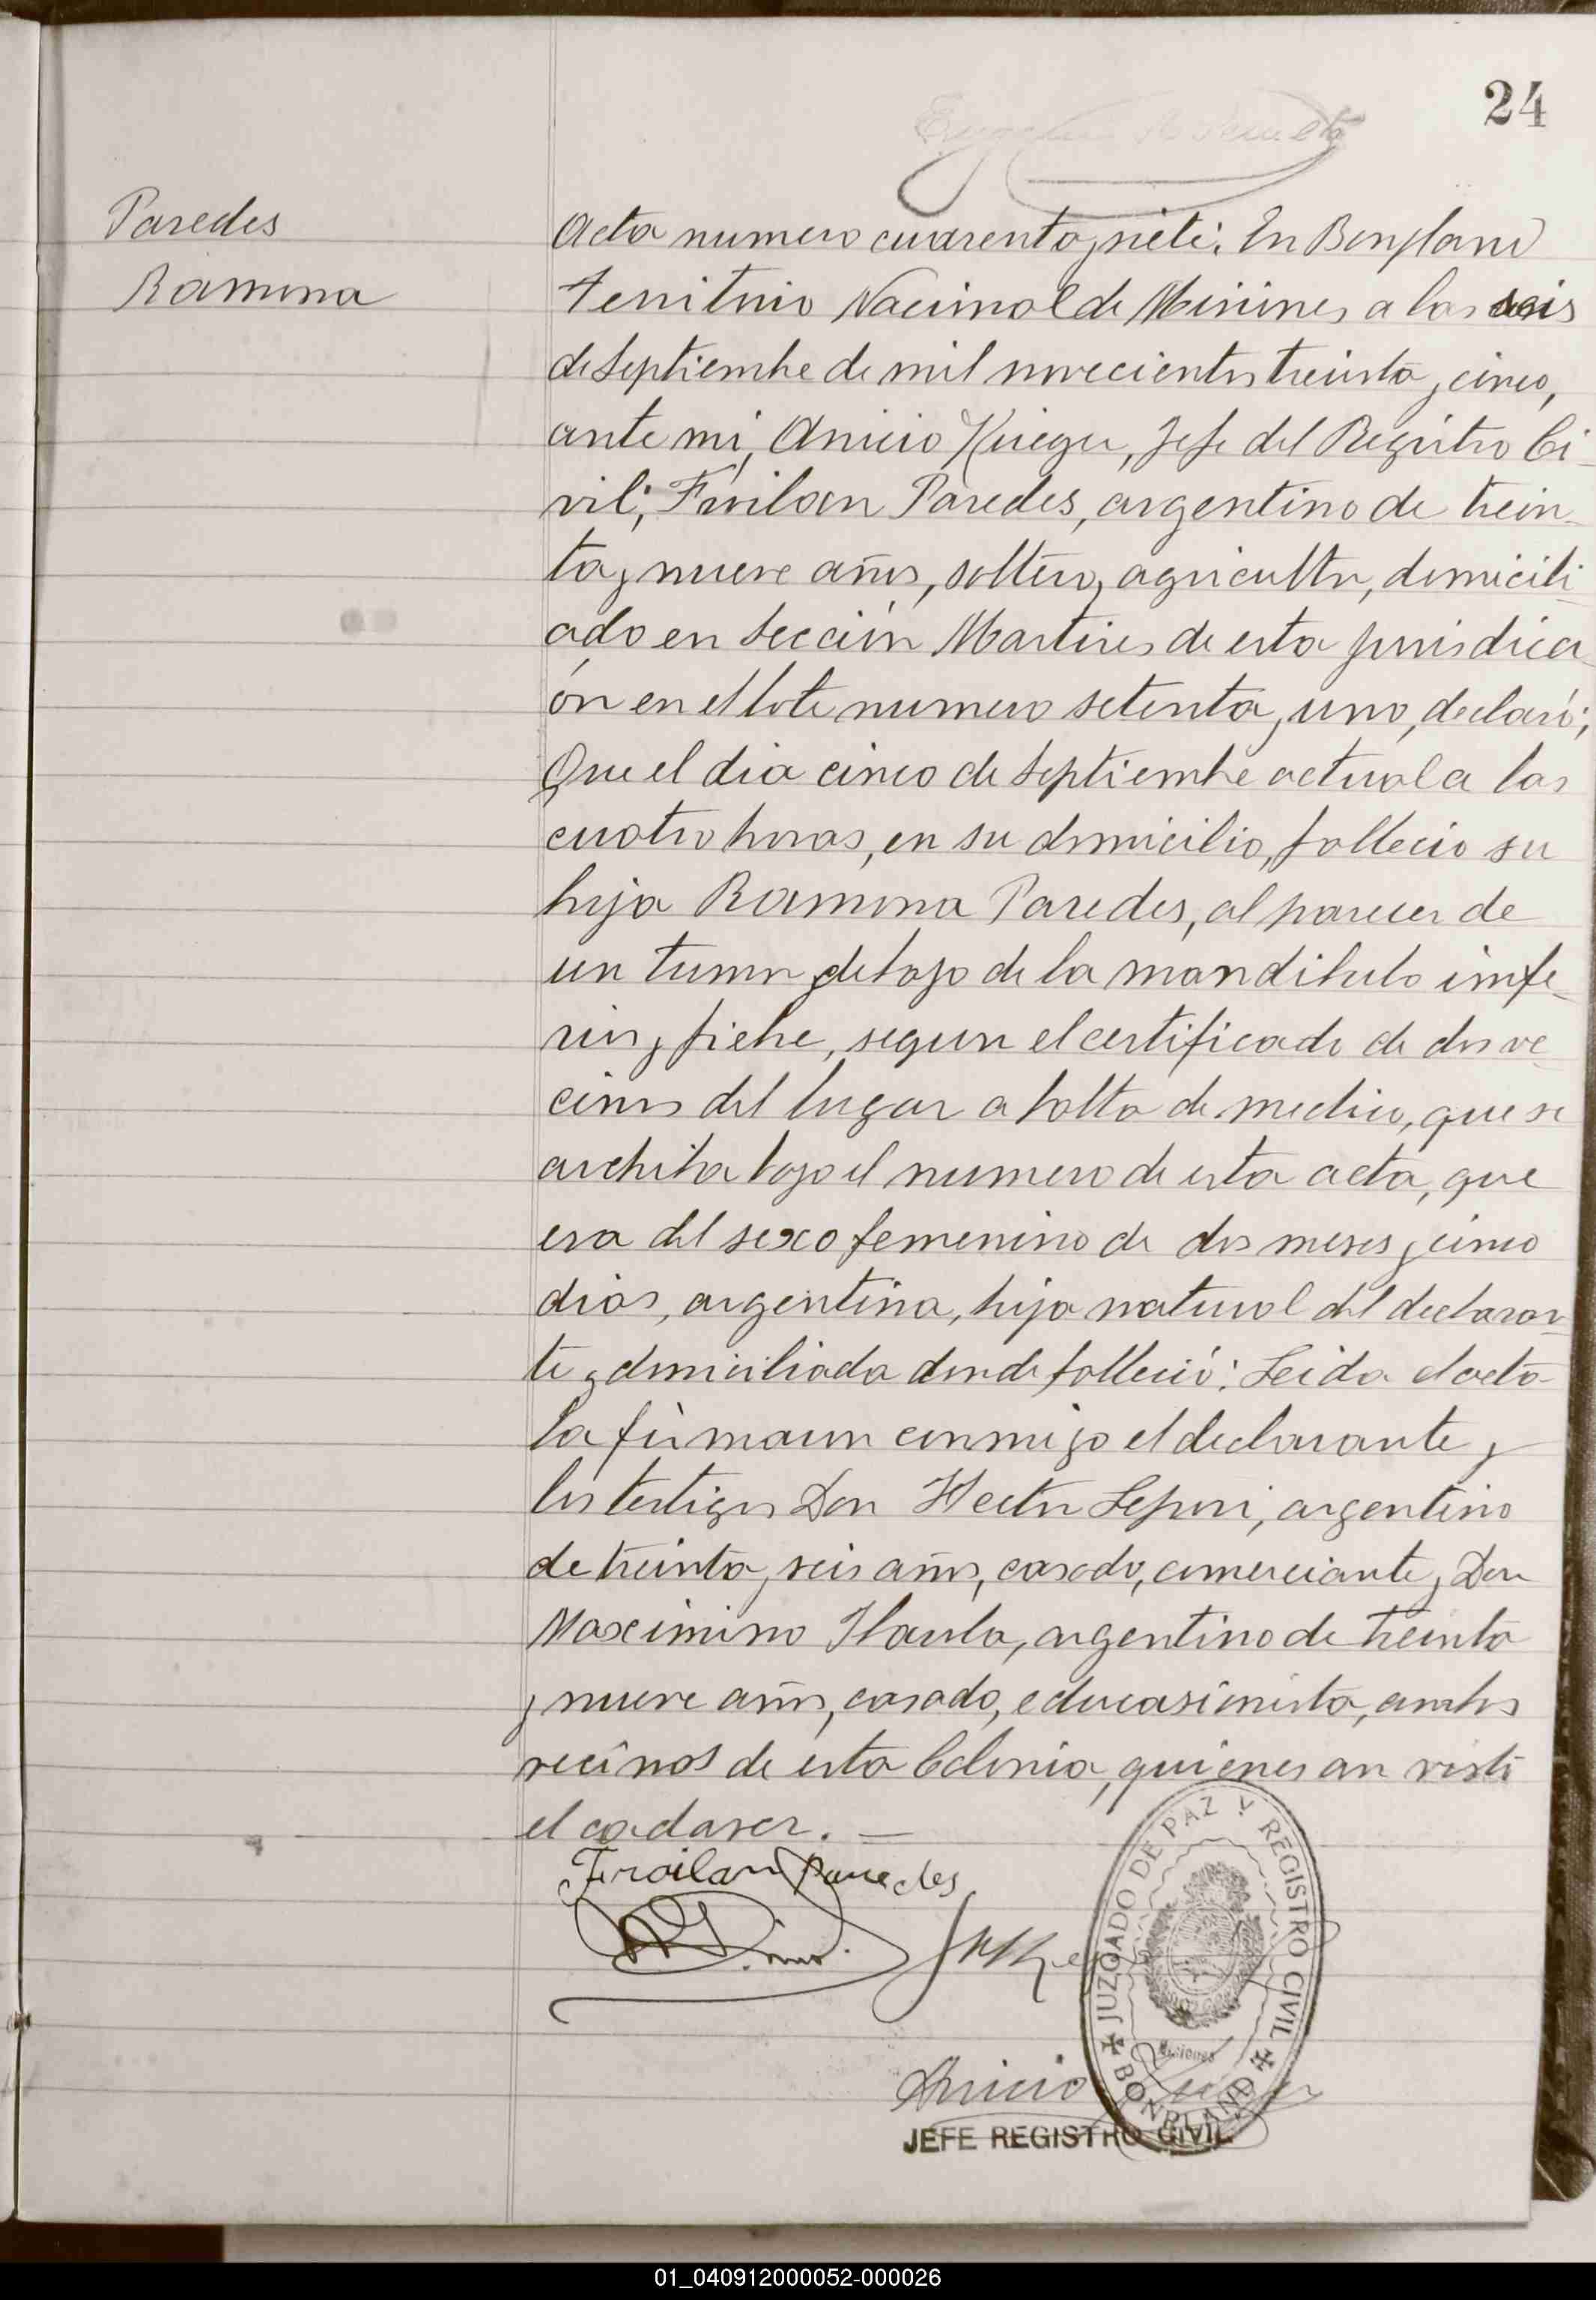 24
Paredes
Ramona
Acta numero cuarenta y siete: En Bonpland
Territorio Nacional de Misiones a los seis
de Septiembre de mil novecientos treinta y cinco,
ante mi, Anicio Krieger, Jefe del Registro Ci-
vil; Froilan Paredes, argentino de trein-
ta y nueve años, soltero, agricultor, domicili-
ado en Sección Martires de esta jurisdicci
ón en el lote numero setenta y uno, declaró;
Que el dia cinco de Septiembre actual a las
cuatro horas, en su domicilio, fallecio su
hija Ramona Paredes, al parecer de
un tumor debajo de la mandibula infe-
rior y fiebre, segun el certificado de dos ve-
cinos del lugar a falta de medico, que se
archiba bajo el numero de esta acta, que
era del sexo femenino de dos meses y cinco
dias, argentina, hija natural del declaran-
te y domiciliada donde falleció: Leida el acta
la firmaun conmigo el declarante y
los testigos Don Hector Lepori, argentino
de treinta y seis años, casado, comerciante y Don
Maximino argentino de treinta
y nueve años, casado, educasionista, ambos
vecinos de esta Colonia, quienes an visto
el cadaver. —
Froilan Paredes
JUZGADO DE PAZ Y REGISTRO CIVIL
Misiones
BONPLAND
Anicio Krieger
JEFE REGISTRO CIVIL
01_040912000052-000026